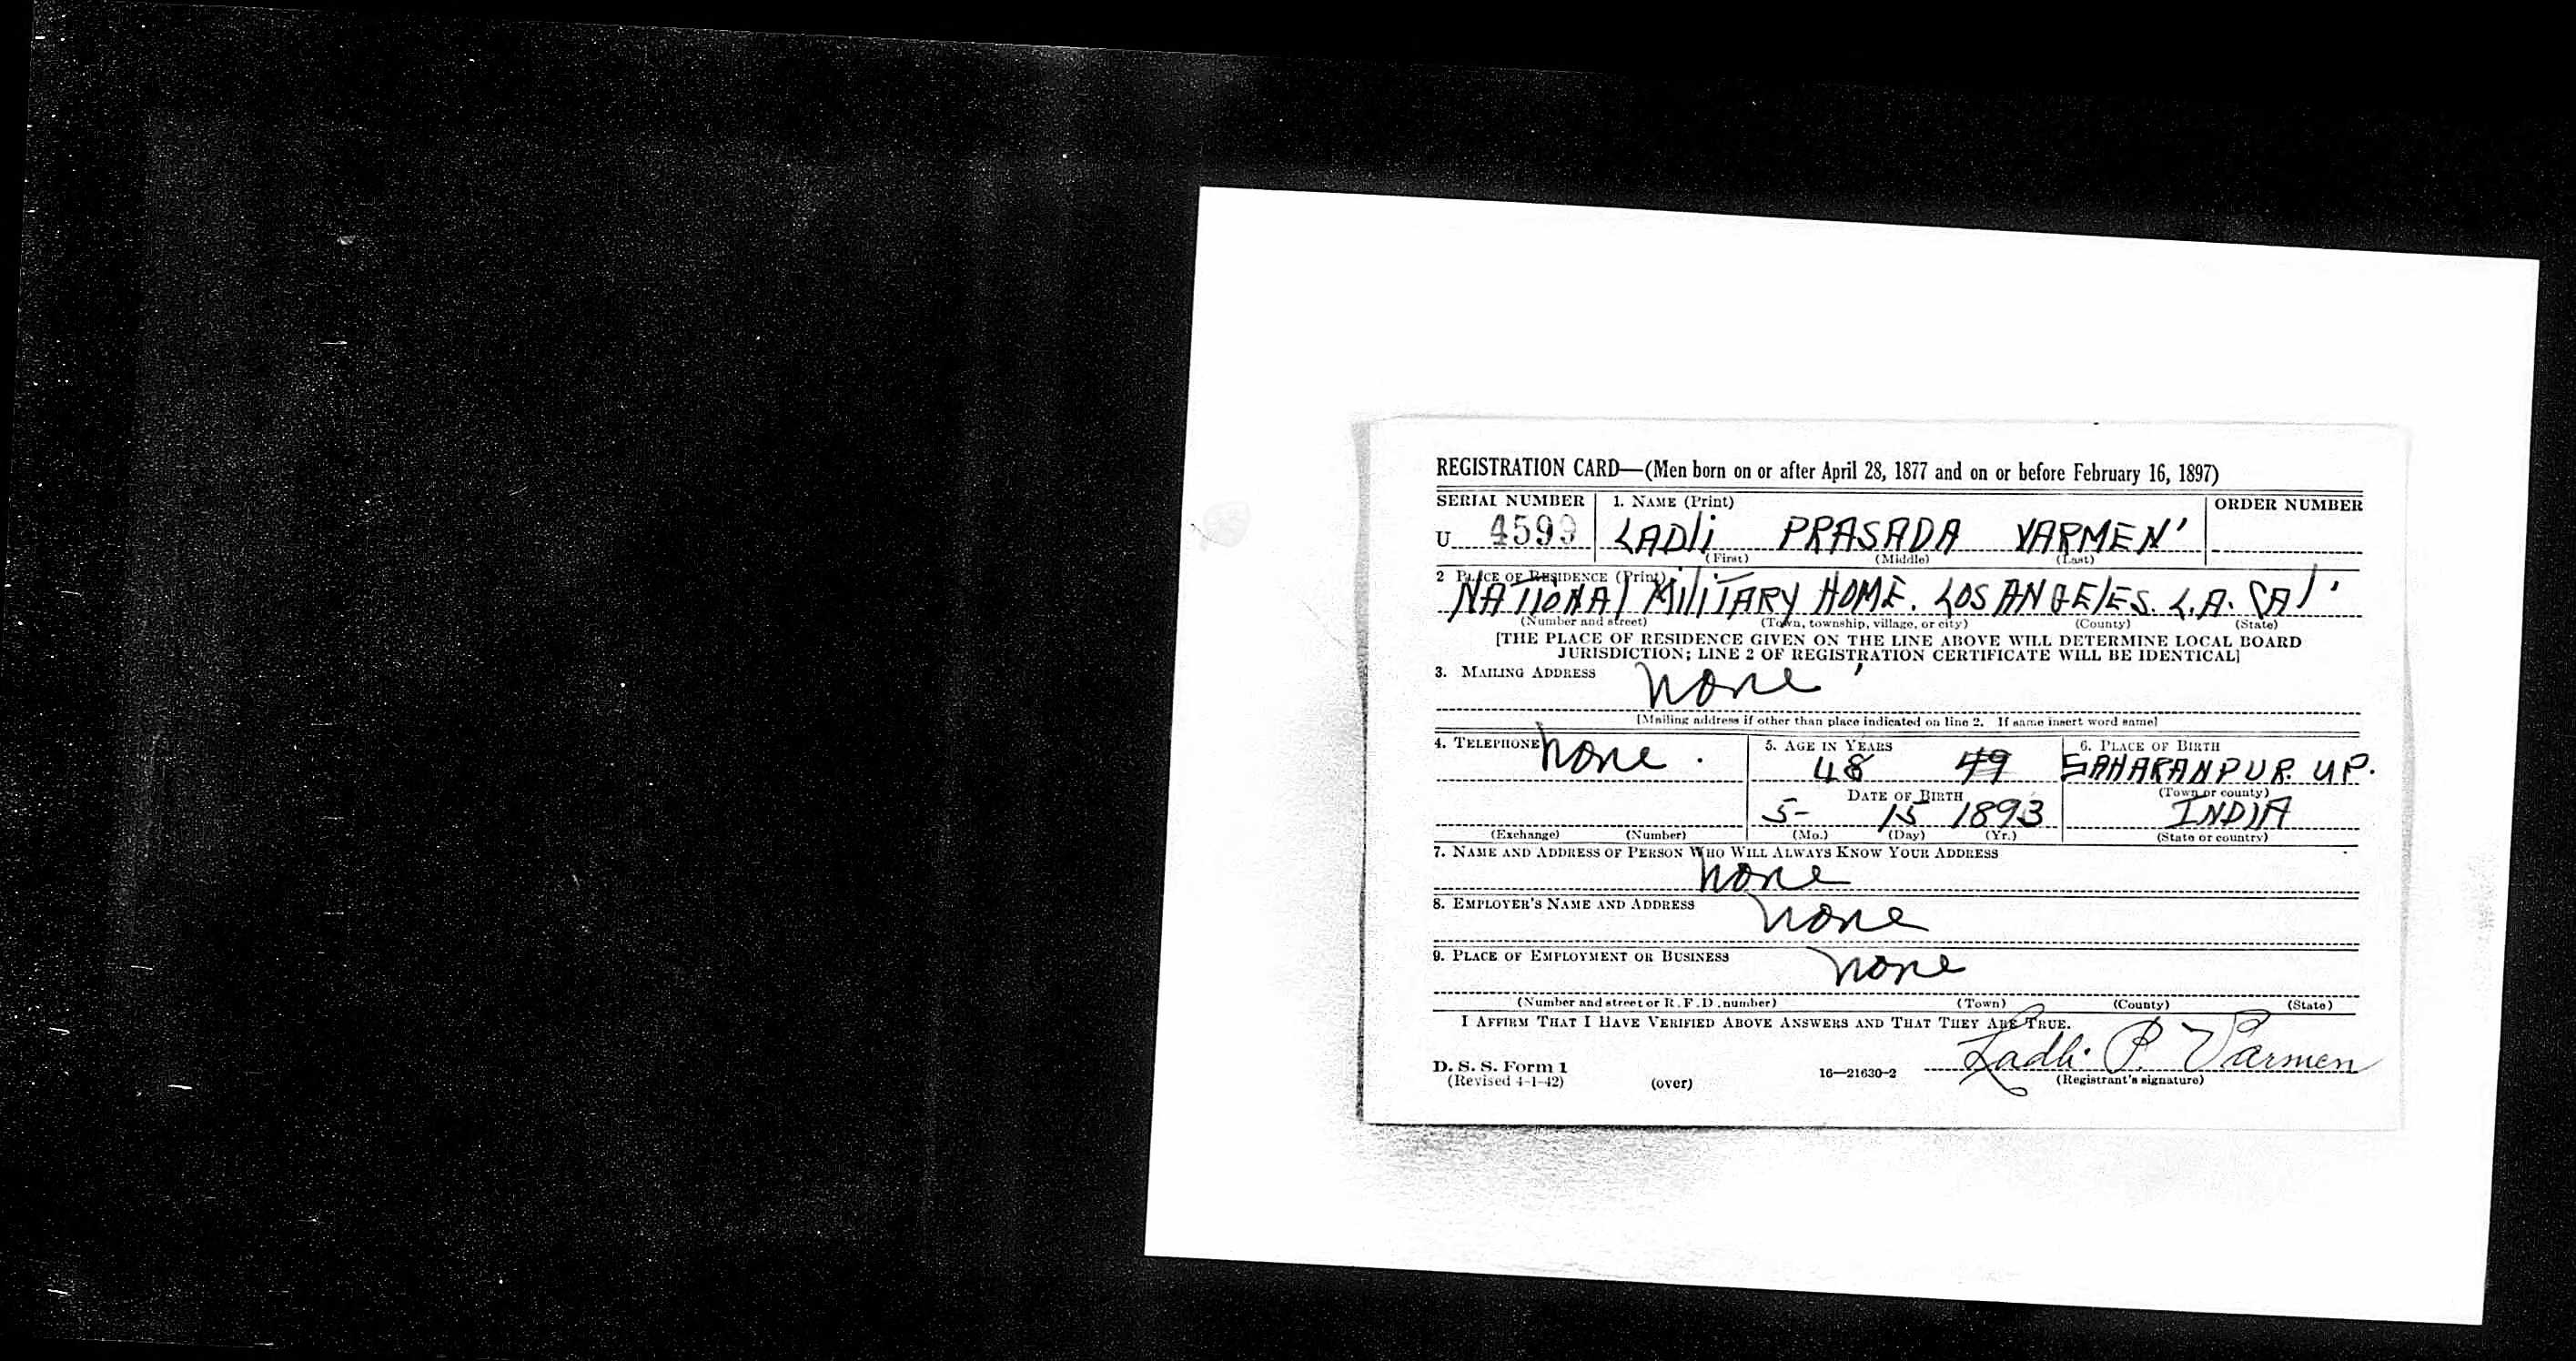 REGISTRATION CARD—(Men born on or after April 28, 1877 and on or before February 16, 1897)
SERIAL NUMBER 1. NAME (Print) ORDER NUMBER
U 4599 LADli PRASADA VARMEN'
(First) (Middle) (Last)
2 PLACE OF RESIDENCE (Print)
NATIONAl MiliTARY HOME. LOS ANGElES. L.A. CAl'
(Number and street) (Town, township, village, or city) (County) (State)
[THE PLACE OF RESIDENCE GIVEN ON THE LINE ABOVE WILL DETERMINE LOCAL BOARD
JURISDICTION; LINE 2 OF REGISTRATION CERTIFICATE WILL BE IDENTICAL]
3. MAILING ADDRESS none
[Mailing address if other than place indicated on line 2. If same insert word same]
4. TELEPHONE none. 5. AGE IN YEARS 6. PLACE OF BIRTH
48 49 SAHARANPUR. U.P.
DATE OF BIRTH (Town or county)
5- 15 1893 INDIA
(Exchange) (Number) (Mo.) (Day) (Yr.) (State or country)
7. NAME AND ADDRESS OF PERSON WHO WILL ALWAYS KNOW YOUR ADDRESS
none
8. EMPLOYER'S NAME AND ADDRESS none
9. PLACE OF EMPLOYMENT OR BUSINESS none
(Number and street or R.F.D. number) (Town) (County) (State)
I AFFIRM THAT I HAVE VERIFIED ABOVE ANSWERS AND THAT THEY ARE TRUE.
Ladli P. Varmen
D. S. S. Form 1
(Revised 4-1-42) (over) 16—21630-2 (Registrant's signature)